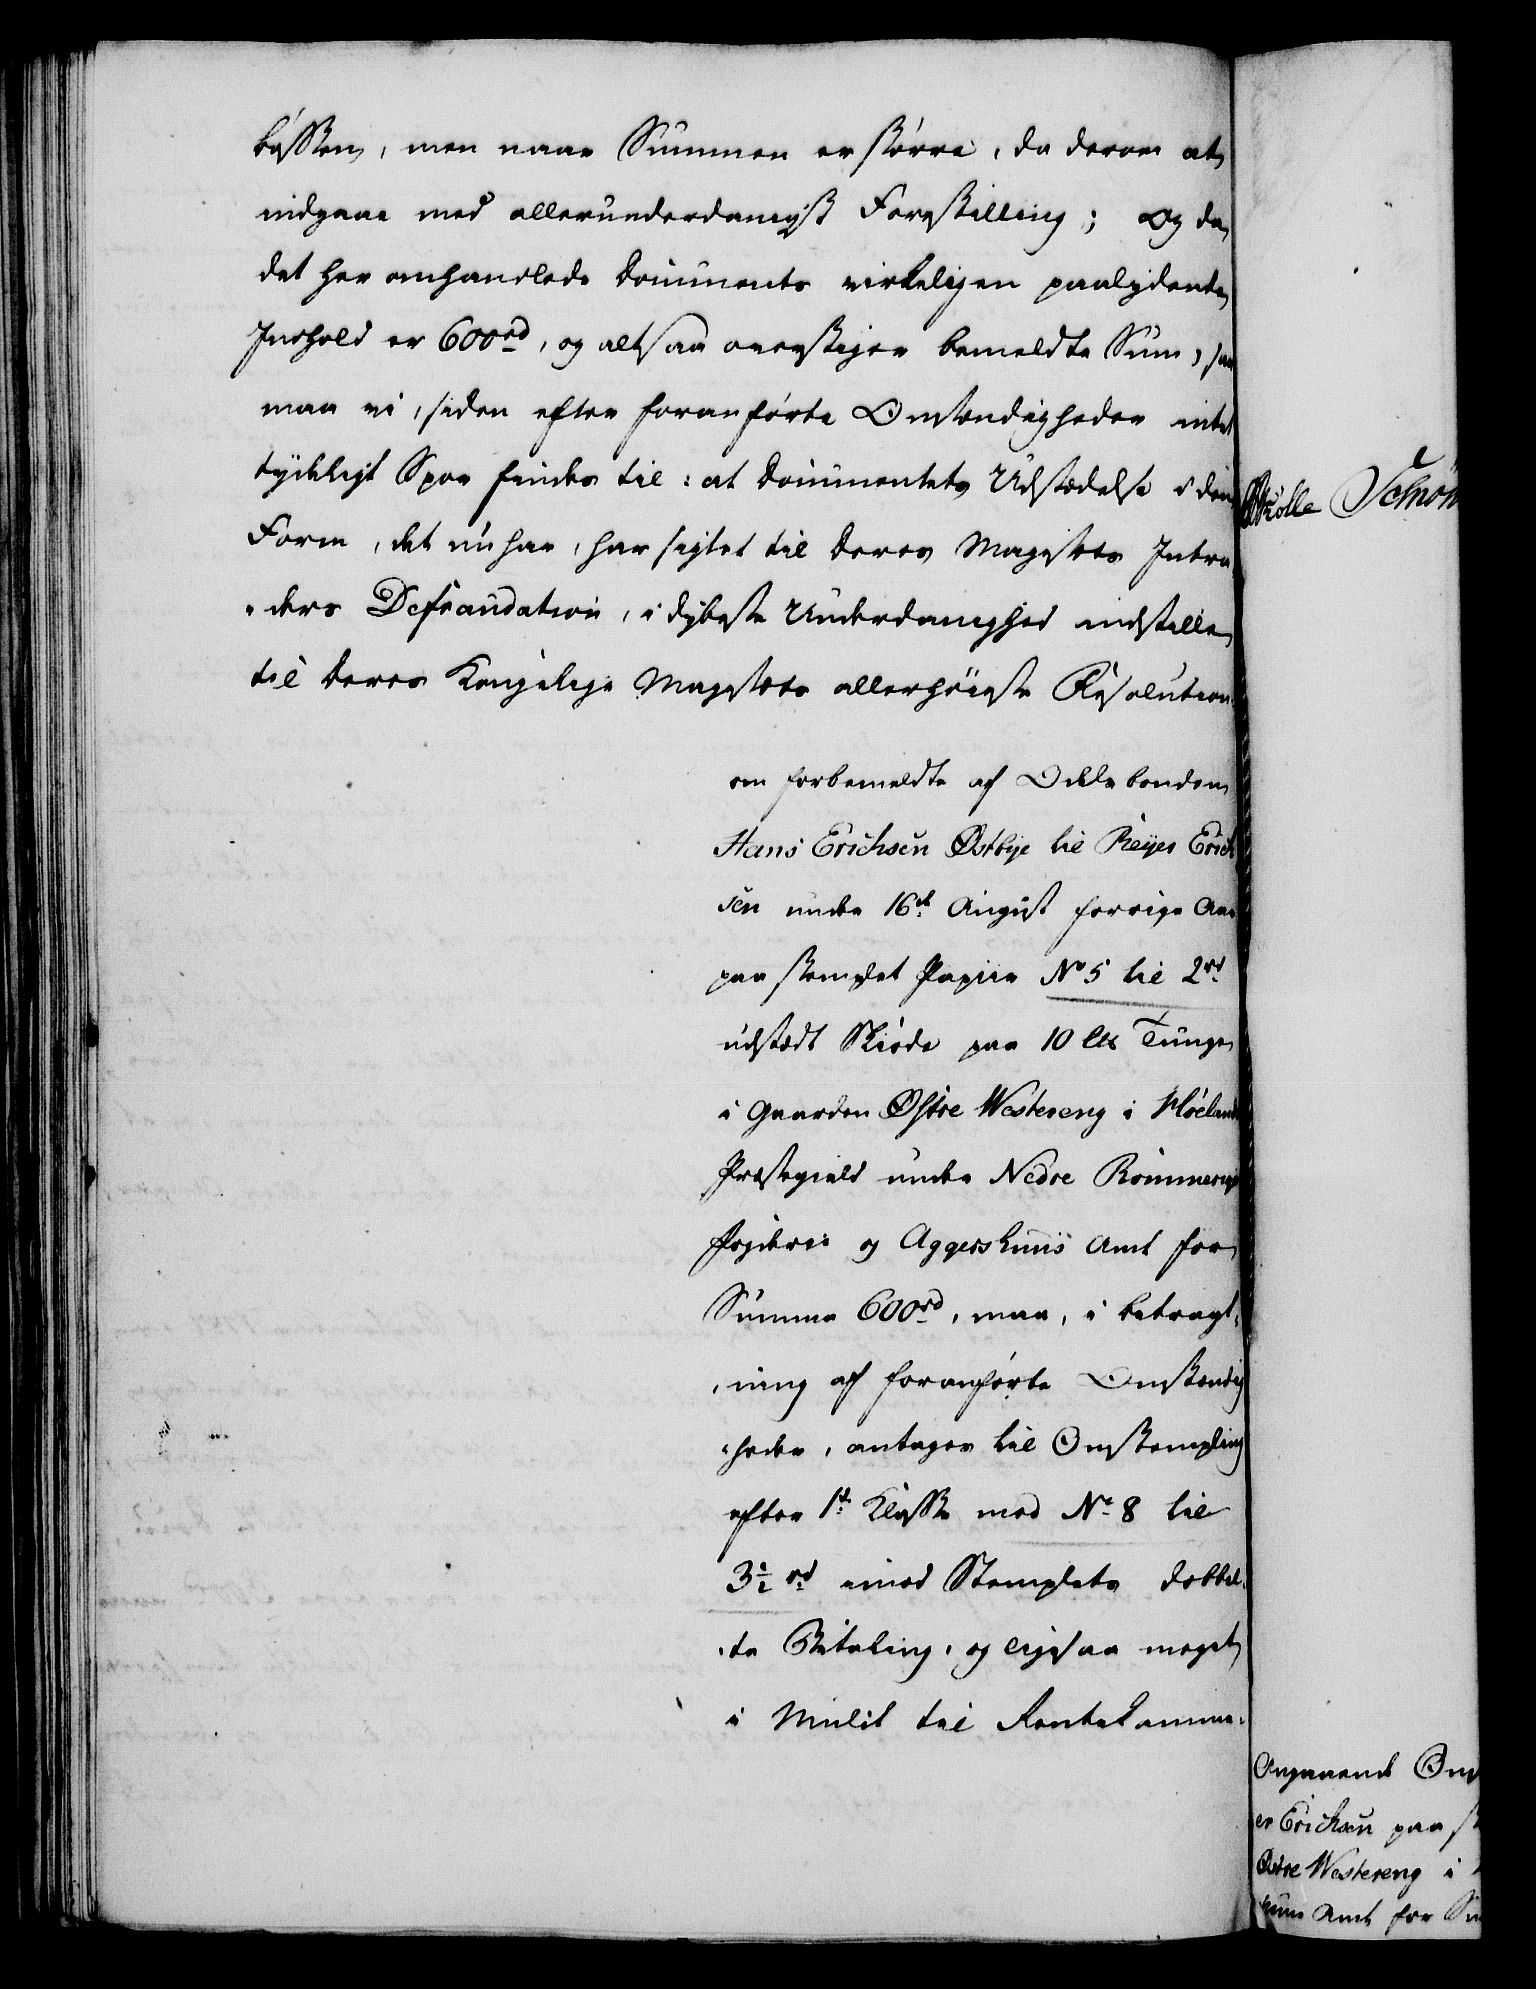 kassen, men naar Summen er større, da derom at
indgaae med allerunderdanigst Forestilling; Og da
det her omhandlede Documents virkeligen paalydende
Indhold er 600 rd, og altsaa overstiger bemeldte Sum, saa
maa vi, siden efter foranførte Omstændigheder intet
tydeligt Spor findes til: at Documentets Udstædelse i den
Form, det nu har, har sigtet til Deres Majestæts Intra-
ders Defraudation, i dybeste Underdanighed indstille
til Deres Kongelige Majestæts allerhøieste Resolution:
om forbemeldte af Odelsbonden
Hans Erichsen Østbye til Reyer Erich
sen under 16de August forrige Aar
paa stemplet Papiir No 5 til 2 rd
udstædt Skiøde paa 10 Lt Tunge
i Gaarden Østre Westereng i Høelands
Præstegield under Nedre Rommerige
Fogderie og Aggershuus Amt for
Summa 600 rd, maa, i betragt-
ning af foranførte Omstændig
heder, antages til Omstempling
efter 1te Klasse med No 8 til
3½ rd imod Stemplets dobbel-
te Betaling, og ligesaa meget
i Mulct til Rentekamme-
Schøn
Angaaende Om
er Erichsen paa
Østre Westereng i
huus Amt for